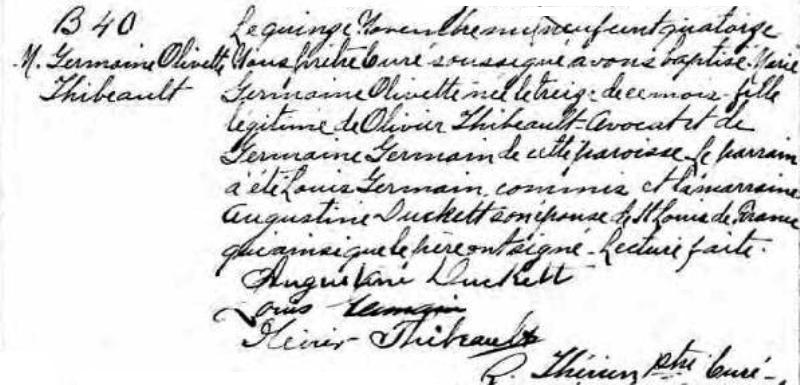 B 40
M. Germaine Olivette
Thibeault
Le quinze Novembre mil neuf cent quatorze
Nous prêtre curé soussigné avons baptisé Marie
Germaine Olivette née le treize de ce mois - fille
légitime de Olivier Thibeault - avocat et de
Germaine Germain de cette paroisse. Le parrain
a été Louis Germain, commis et la marraine
Augustine Duckett son épouse de St Louis de France
qui ainsi que le père ont signé - Lecture faite.
Augustine Duckett
Louis Germain
Olivier Thibeault
Thérien ptre Curé -